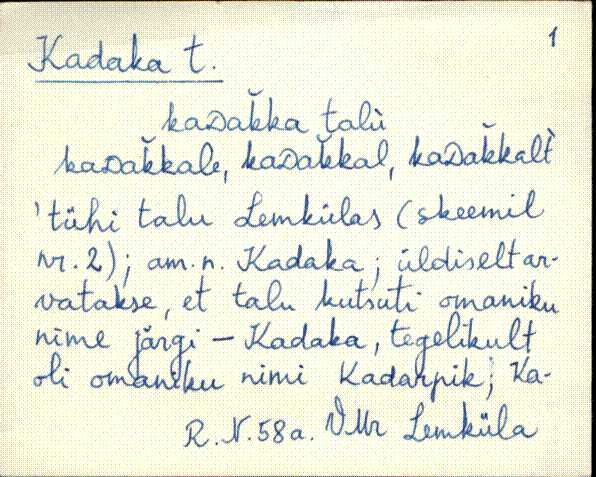 1
Kadaka t.
kaDak̆ka talù
kaDak̆kale, kaDak̆kal, kaDak̆kalt̀
'tühi talu Lemkülas (skeemil
nr. 2); am. n. Kadaka; üldiselt ar-
vatakse, et talu kutsuti omaniku
nime järgi – Kadaka, tegelikult
oli omaniku nimi Kadarpik; Ka-
R. N. 58 a. VMr Lemküla